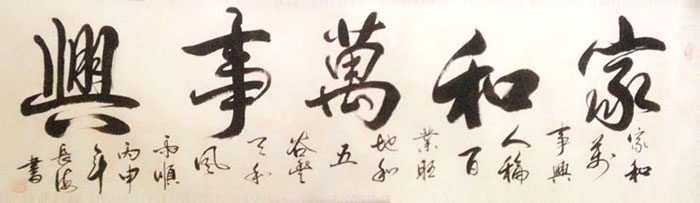 家和萬事興
家和
萬
事興
人稱
百
業旺
地和
五
谷豐
天和
風
雨順
丙申
年
長海
書